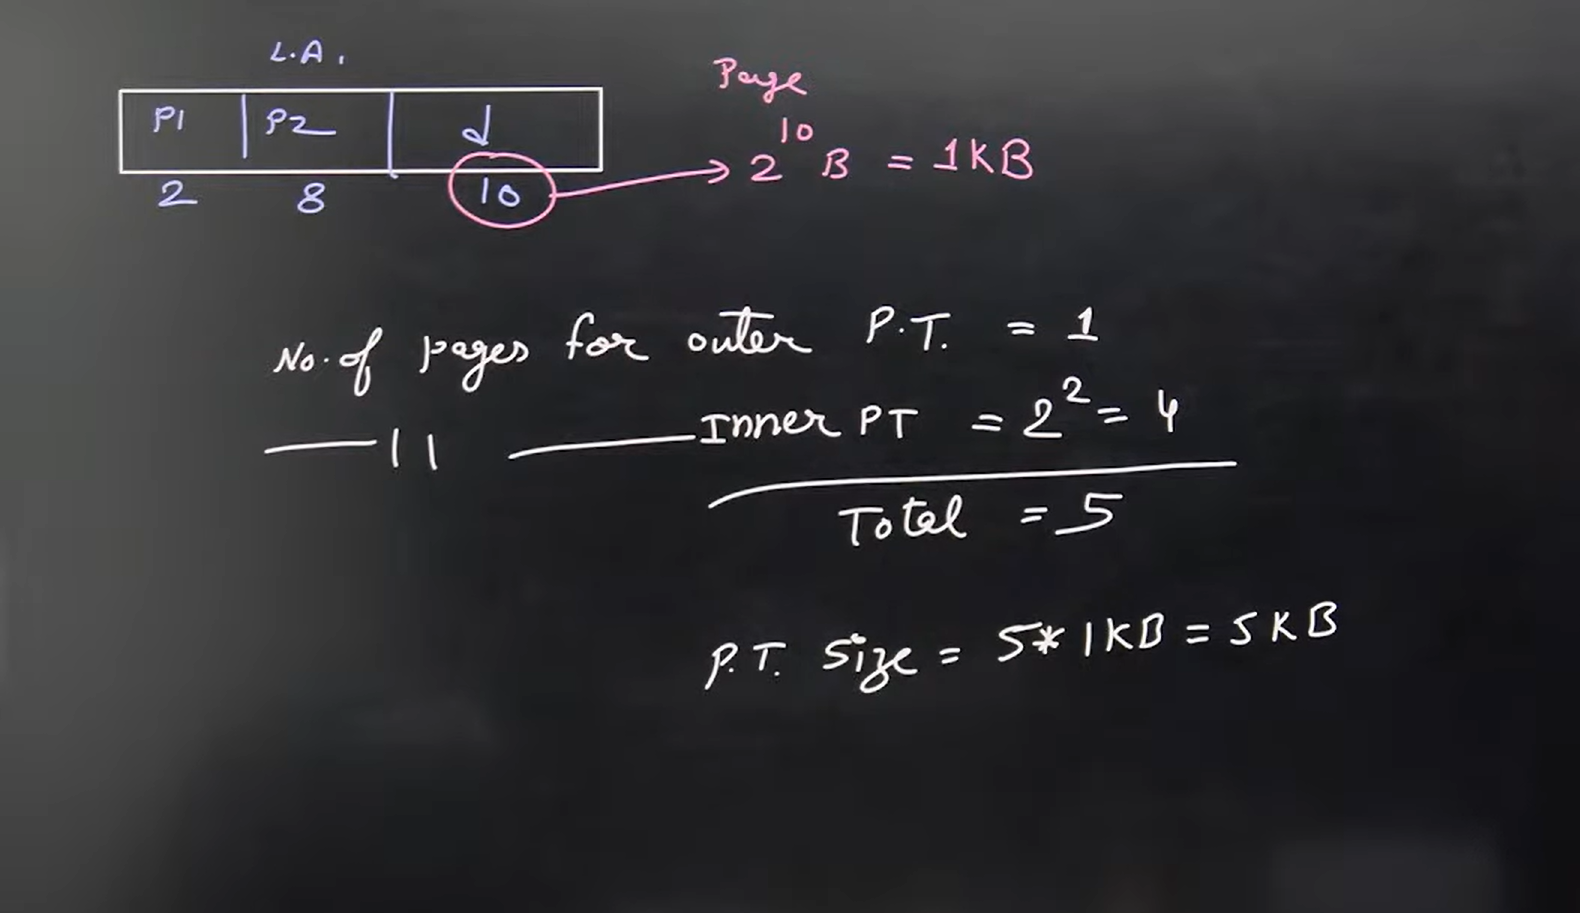 L.A.
P1 P2 d
2 8 10
Page
2^10 B = 1KB
No. of pages for outer P.T. = 1
—— 11 —— Inner PT = 2^2 = 4
Total = 5
P.T. Size = 5 * 1KB = 5KB